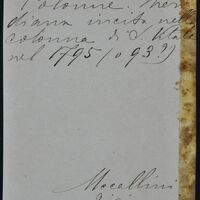 Colonne. Meri
diana incita nella
colonna di S.
nel 1795 (o 93?)
Mccellini